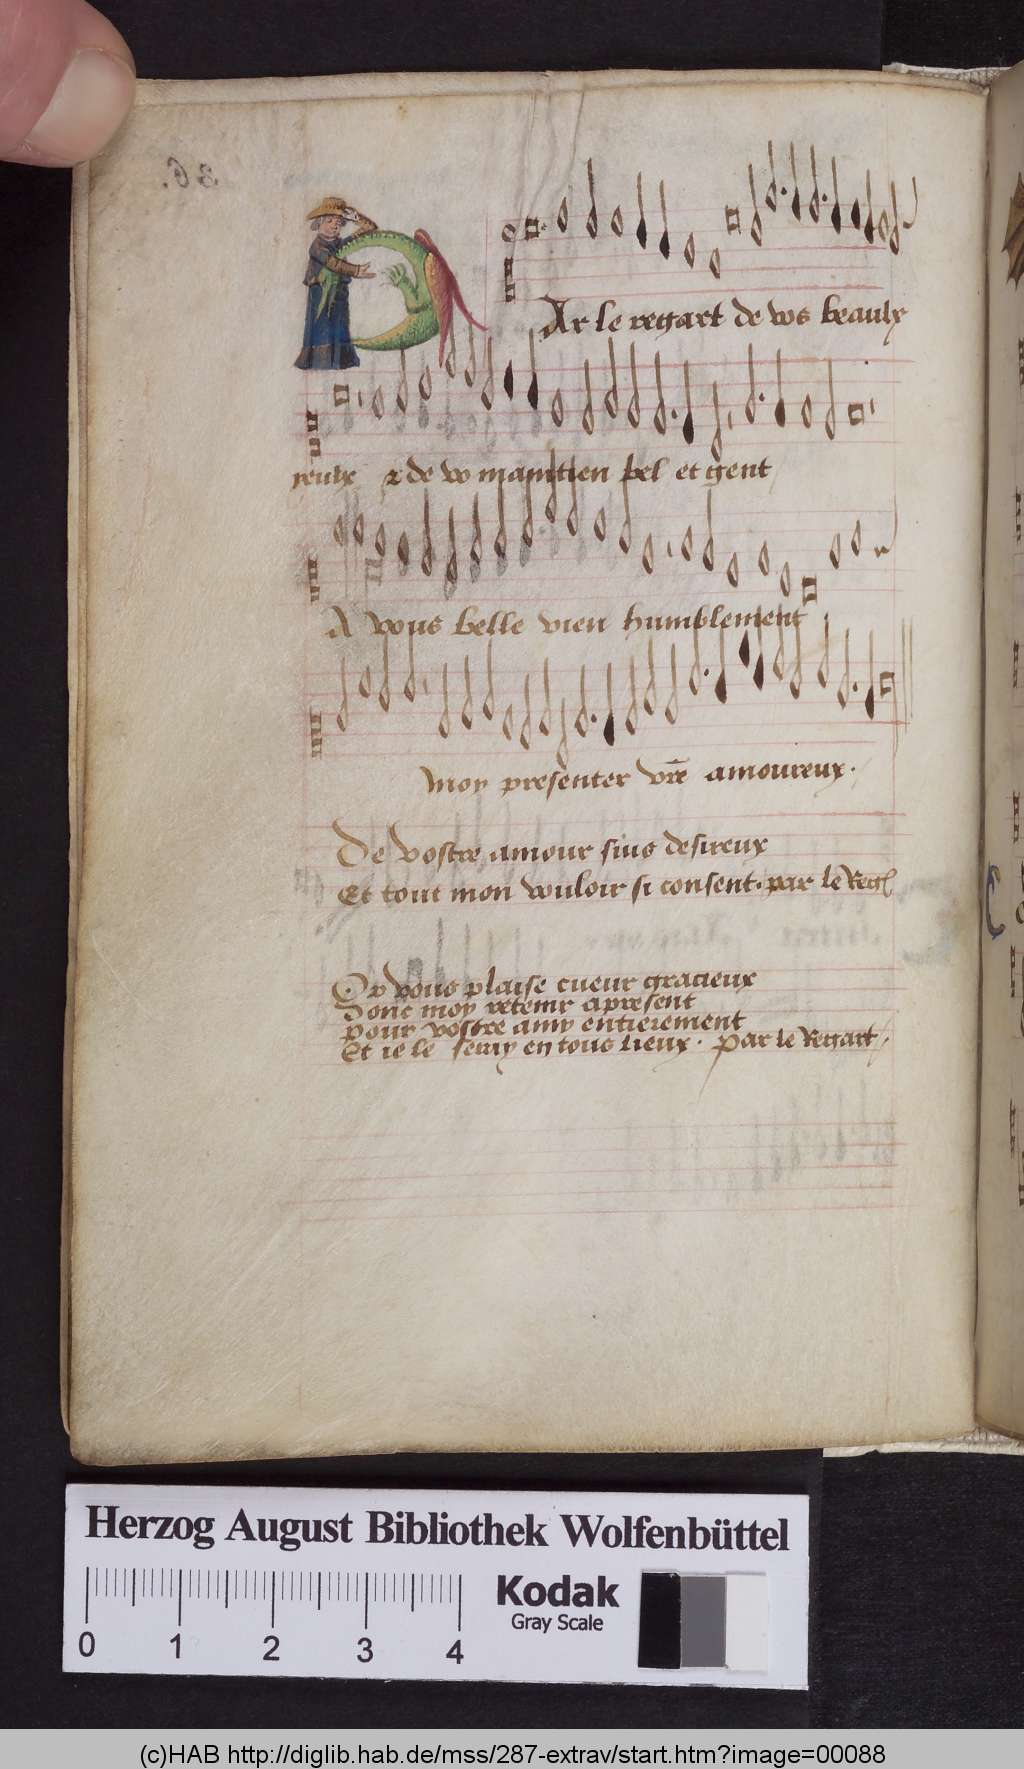 36.
PAr le regart de vos beaulx
yeulx & de vo maintien bel et gent
A vous belle vien humblement
moy presenter vr̄e amoureux.
De vostre amour suis desireux
Et tout mon vouloir si consent. par le Reg
Or vous plaise cueur gracieux
donc moy retenir apresent
pour vostre amy entierement
Et ie le seray en tous lieux. Par le Regart
Herzog August Bibliothek Wolfenbüttel
0 1 2 3 4
Kodak
Gray Scale
(c)HAB http://diglib.hab.de/mss/287-extrav/start.htm?image=00088